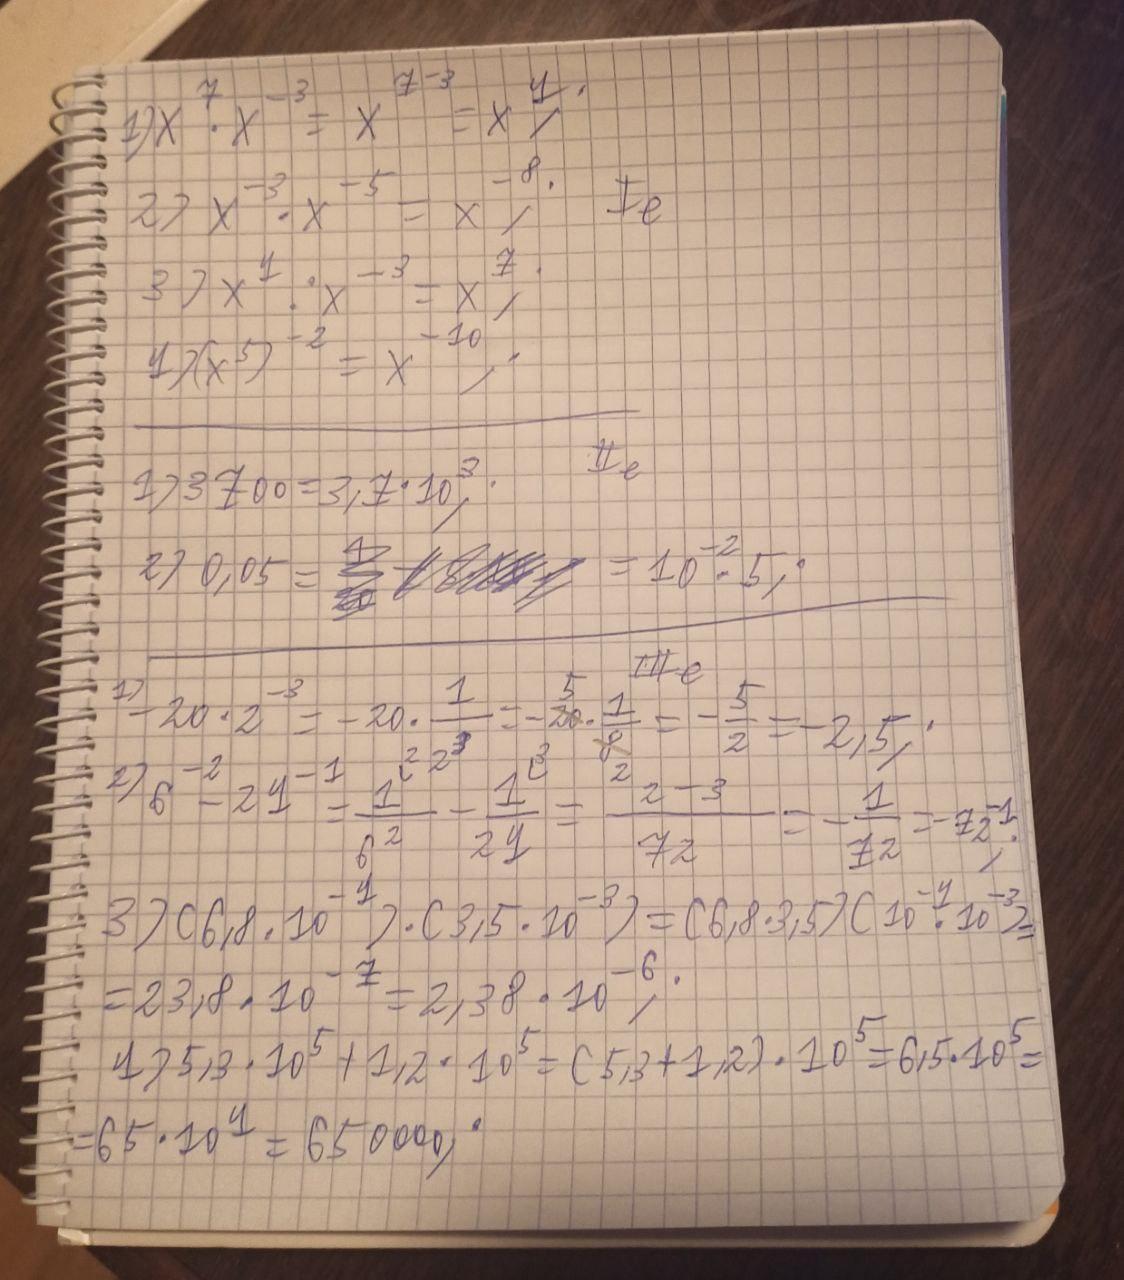 1) x⁷ · x⁻³ = x⁷⁻³ = x⁴;
2) x⁻³ · x⁻⁵ = x⁻⁸; I e
3) x⁴ : x⁻³ = x⁷;
4) (x⁵)⁻² = x⁻¹⁰;
II e
1) 3700 = 3,7 · 10³;
2) 0,05 = = 10⁻² · 5;
III e
1) -20 · 2⁻³ = -20 · 1/2³ = -20 · 1/8 = -5/2 = -2,5;
2) 6⁻² - 24⁻¹ = 1/6² - 1/24 = (2-3)/72 = -1/72 = -72⁻¹;
3) (6,8 · 10⁻⁴) · (3,5 · 10⁻³) = (6,8 · 3,5)(10⁻⁴ · 10⁻³) =
= 23,8 · 10⁻⁷ = 2,38 · 10⁻⁶;
4) 5,3 · 10⁵ + 1,2 · 10⁵ = (5,3 + 1,2) · 10⁵ = 6,5 · 10⁵ =
= 65 · 10⁴ = 650000;